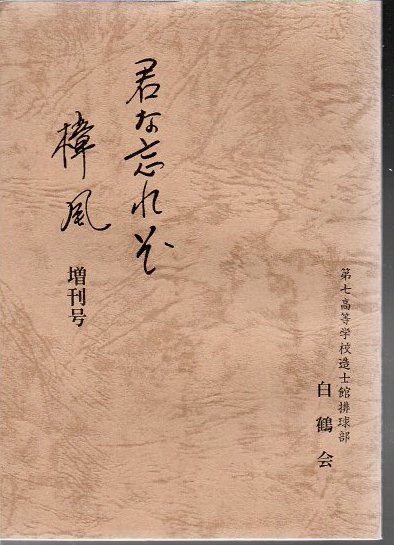 君な忘れそ
樟風
増刊号
第七高等学校造士館排球部
白鶴会